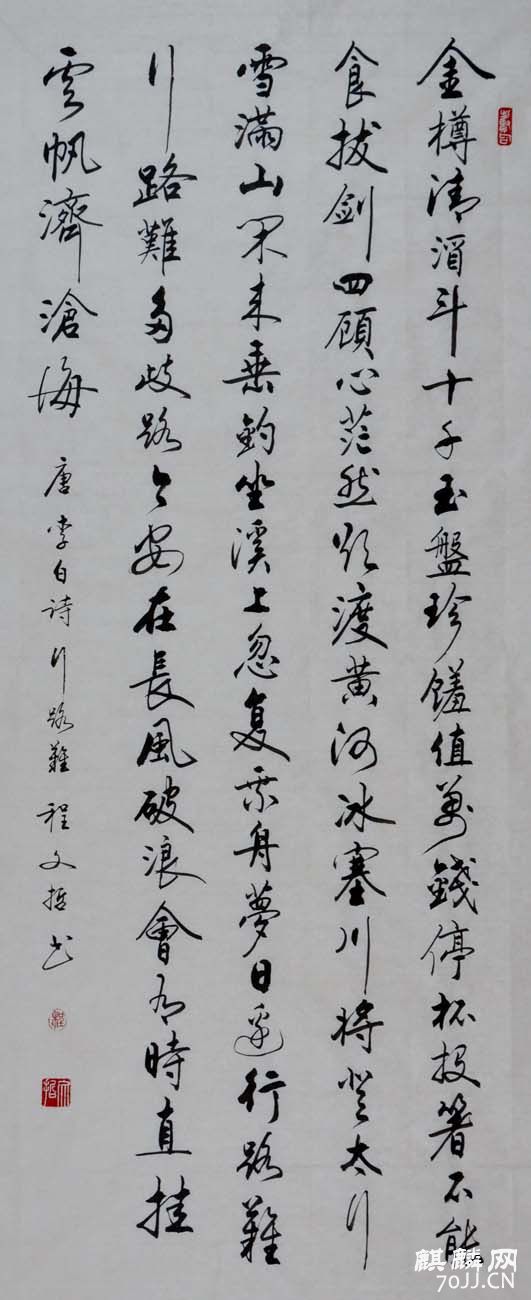 金樽清酒斗十千玉盤珍饈值萬錢停杯投箸不能
食拔剑四顾心茫然欲渡黄河冰塞川将登太行
雪滿山闲来垂釣坐溪上忽复乘舟夢日邊行路難
行路難多歧路今安在長風破浪會有時直挂
雲帆濟滄海
唐李白诗行路難 程文哲书
麒麟网
70JJ.CN